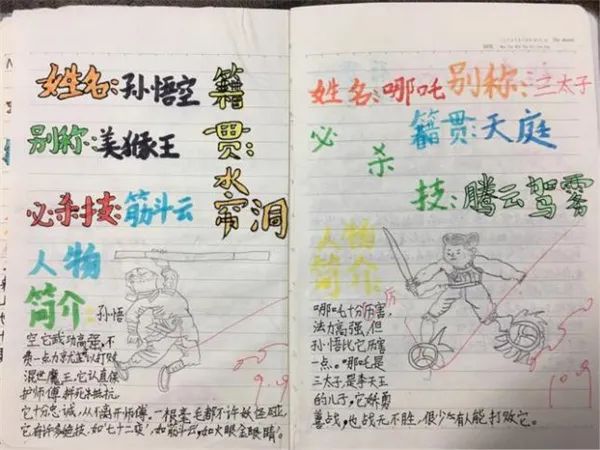 姓名:孙悟空
别称:美猴王
必杀技:筋斗云
籍贯:水帘洞
人物
简介:孙悟
空它武功高强,不
费一点力就足以打败
混世魔王,它认真保
护师傅,拼死抵抗
它十分忠诚,从不离开师傅,一根毫毛都不许妖怪碰,
它有许多绝技,如“七十二变”,如筋斗云,如火眼金睛。
姓名:哪吒 别称:三太子
籍贯:天庭
必杀
技:腾云驾雾
人物
简介:
哪吒十分厉害,
厉
法力高强,但
孙悟比它厉害
一点。哪吒是
三太子,是李天王
的儿子,它娇勇
善战,也战无不胜,很少有人能打败它。